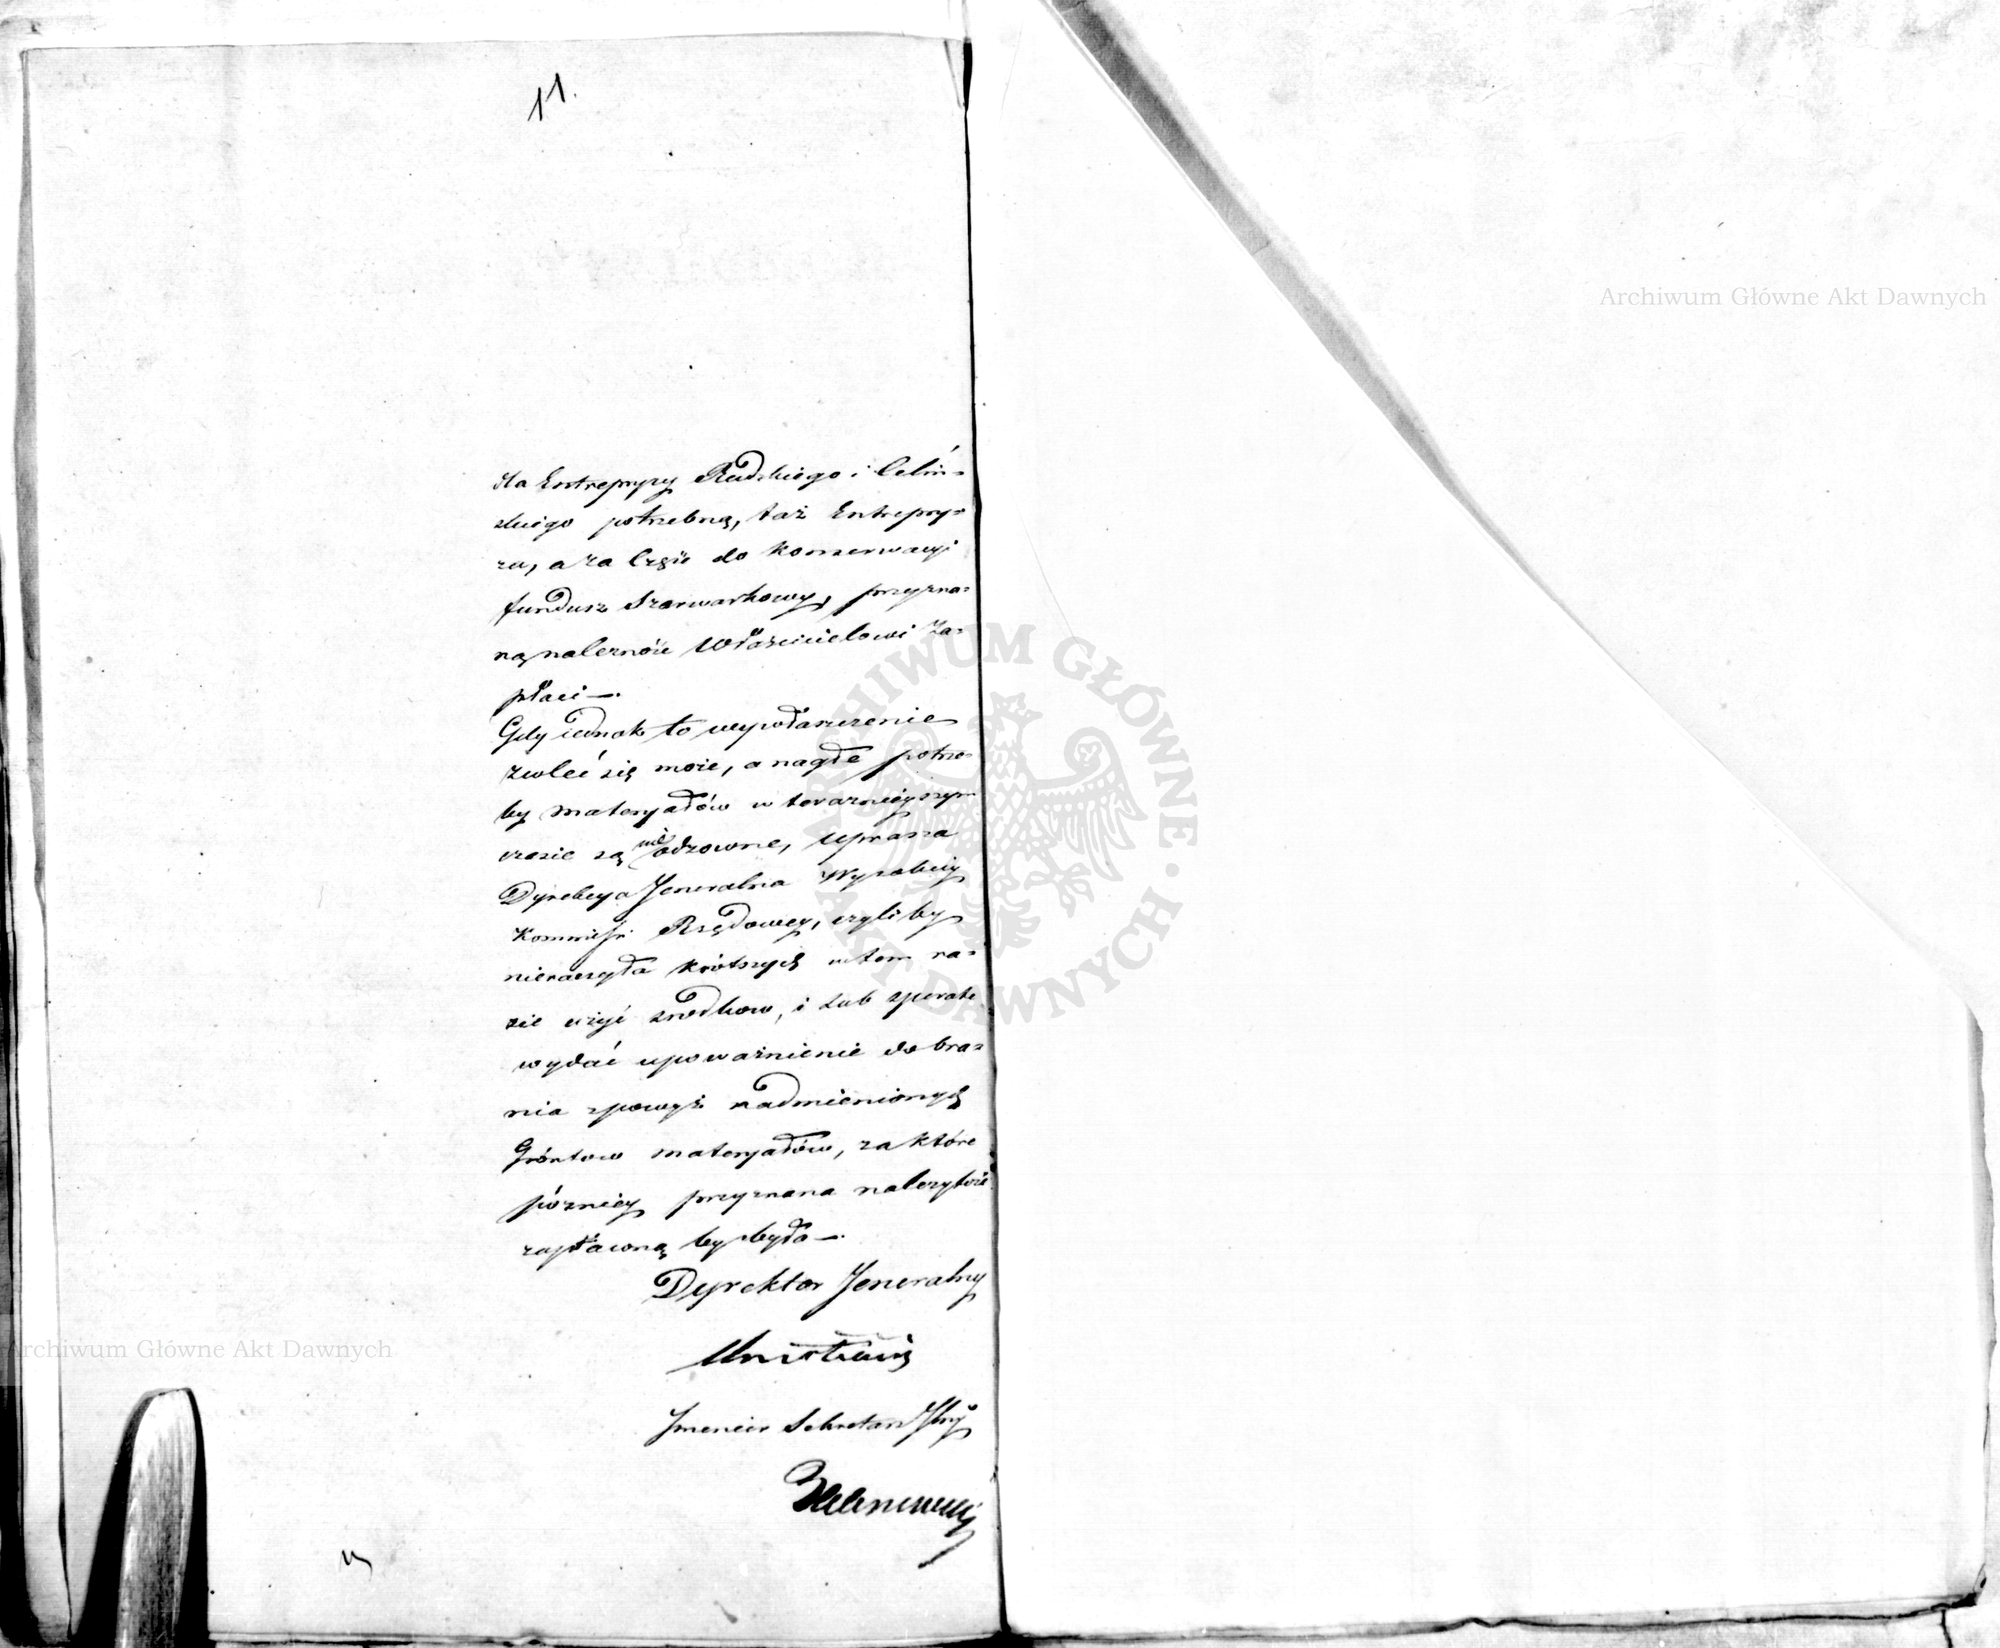 11.
dla Entrepryzy Rudzkiego i Celiń=
skiego potrzebną, taż Entrepry=
za, a za Część do konserwacyi
fundusz Szarwarkowy, przyzna=
ną należność Właścicielowi za=
płaci —.
Gdy iednak to wywłaszczenie
zwlec się może, a nagłe potrze=
by materyałów w teraźnieyszym
czasie są nieodzowne, uprasza
Dyrekcya Jeneralna Wysokiey
Kommissyi Rządowey, czyliby
nieraczyła krótszych w tem ra=
zie użyć środkow, i lub
wydać upoważnienie do bra=
nia zpowyż nadmienionych
Gróntow materyałów, za które
późniey przyznana należytość
zapłaconą by była —.
Dyrektor Jeneralny
Sekretarz
Archiwum Główne Akt Dawnych
ARCHIWUM GŁÓWNE AKT DAWNYCH
Archiwum Główne Akt Dawnych